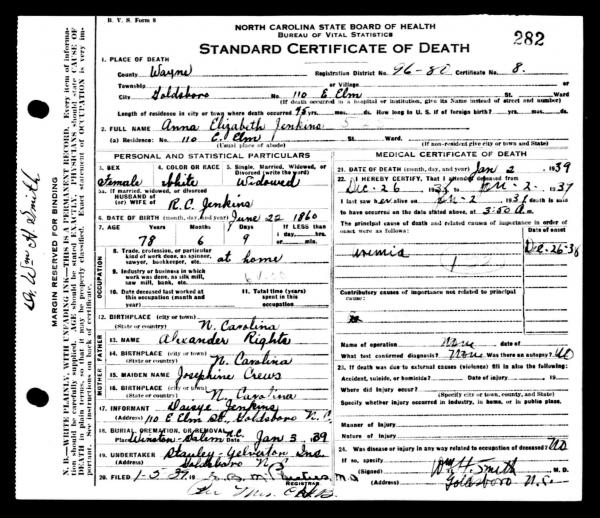 B. V. S. Form 8
NORTH CAROLINA STATE BOARD OF HEALTH
BUREAU OF VITAL STATISTICS
STANDARD CERTIFICATE OF DEATH
282
1. PLACE OF DEATH
County Wayne Registration District No. 96-80 Certificate No. 8.
Township or Village
City Goldsboro No. 110 E Elm St. Ward
(If death occurred in a hospital or institution, give its Name instead of street and number)
Length of residence in city or town where death occurred 45 yrs. mos. ds. How long in U. S. if of foreign birth? yrs. mos. ds.
2. FULL NAME Anna Elizabeth Jenkins
(a) Residence: No. 110 E. Elm St. Ward.
(Usual place of abode) (If non-resident give city or town and State)
PERSONAL AND STATISTICAL PARTICULARS
3. SEX Female
4. COLOR OR RACE white
5. Single, Married, Widowed, or Divorced (write the word) Widowed
5a. If married, widowed, or divorced
HUSBAND of
(or) WIFE of R.C. Jenkins
6. DATE OF BIRTH (month, day, and year) June 22 1860
7. AGE Years Months Days If LESS than
78 6 9 1 day, hrs.
or min.
OCCUPATION
8. Trade, profession, or particular kind of work done, as spinner, sawyer, bookkeeper, etc. at home
9. Industry or business in which work was done, as silk mill, saw mill, bank, etc.
10. Date deceased last worked at this occupation (month and year)
11. Total time (years) spent in this occupation
12. BIRTHPLACE (city or town)
(State or country) N. Carolina
FATHER
13. NAME Alexander Rights
14. BIRTHPLACE (city or town)
(State or country) N. Carolina
MOTHER
15. MAIDEN NAME Josephine Crews
16. BIRTHPLACE (city or town)
(State or country) N. Carolina
17. INFORMANT Daisye Jenkins
(Address) 110 E Elm St., Goldsboro N.C.
18. BURIAL, CREMATION, OR REMOVAL
Place Winston-Salem N.C. Date Jan 3, 39
19. UNDERTAKER Stanley-Yelverton Inc.
(Address) Goldsboro N.C.
20. FILED 1-5-39, 19
REGISTRAR
Per Mrs.
MEDICAL CERTIFICATE OF DEATH
21. DATE OF DEATH (month, day, and year) Jan 2, 1939
22. I HEREBY CERTIFY, That I attended deceased from
Dec-26 to Jan-2-1937
I last saw her alive on death is said
to have occurred on the date stated above, at 3:50 a.m.
The principal cause of death and related causes of importance in order of onset were as follows: Date of onset
uremia Dec-26-38
Contributory causes of importance not related to principal cause:
Name of operation None Date of
What test confirmed diagnosis? None Was there an autopsy? No
23. If death was due to external causes (violence) fill in also the following:
Accident, suicide, or homicide? Date of injury 19
Where did injury occur?
(Specify city or town, county, and State)
Specify whether injury occurred in industry, in home, or in public place.
Manner of Injury
Nature of Injury
24. Was disease or injury in any way related to occupation of deceased? No
If so, specify
(Signed) Wm H. Smith M. D.
(Address) Goldsboro N.C.
Dr. Wm H. Smith
MARGIN RESERVED FOR BINDING
N. B.—WRITE PLAINLY, WITH UNFADING INK—THIS IS A PERMANENT RECORD. Every item of information should be carefully supplied. AGE should be stated EXACTLY. PHYSICIANS should state CAUSE OF DEATH in plain terms, so that it may be properly classified. Exact statement of OCCUPATION is very important. See instructions on back of certificate.